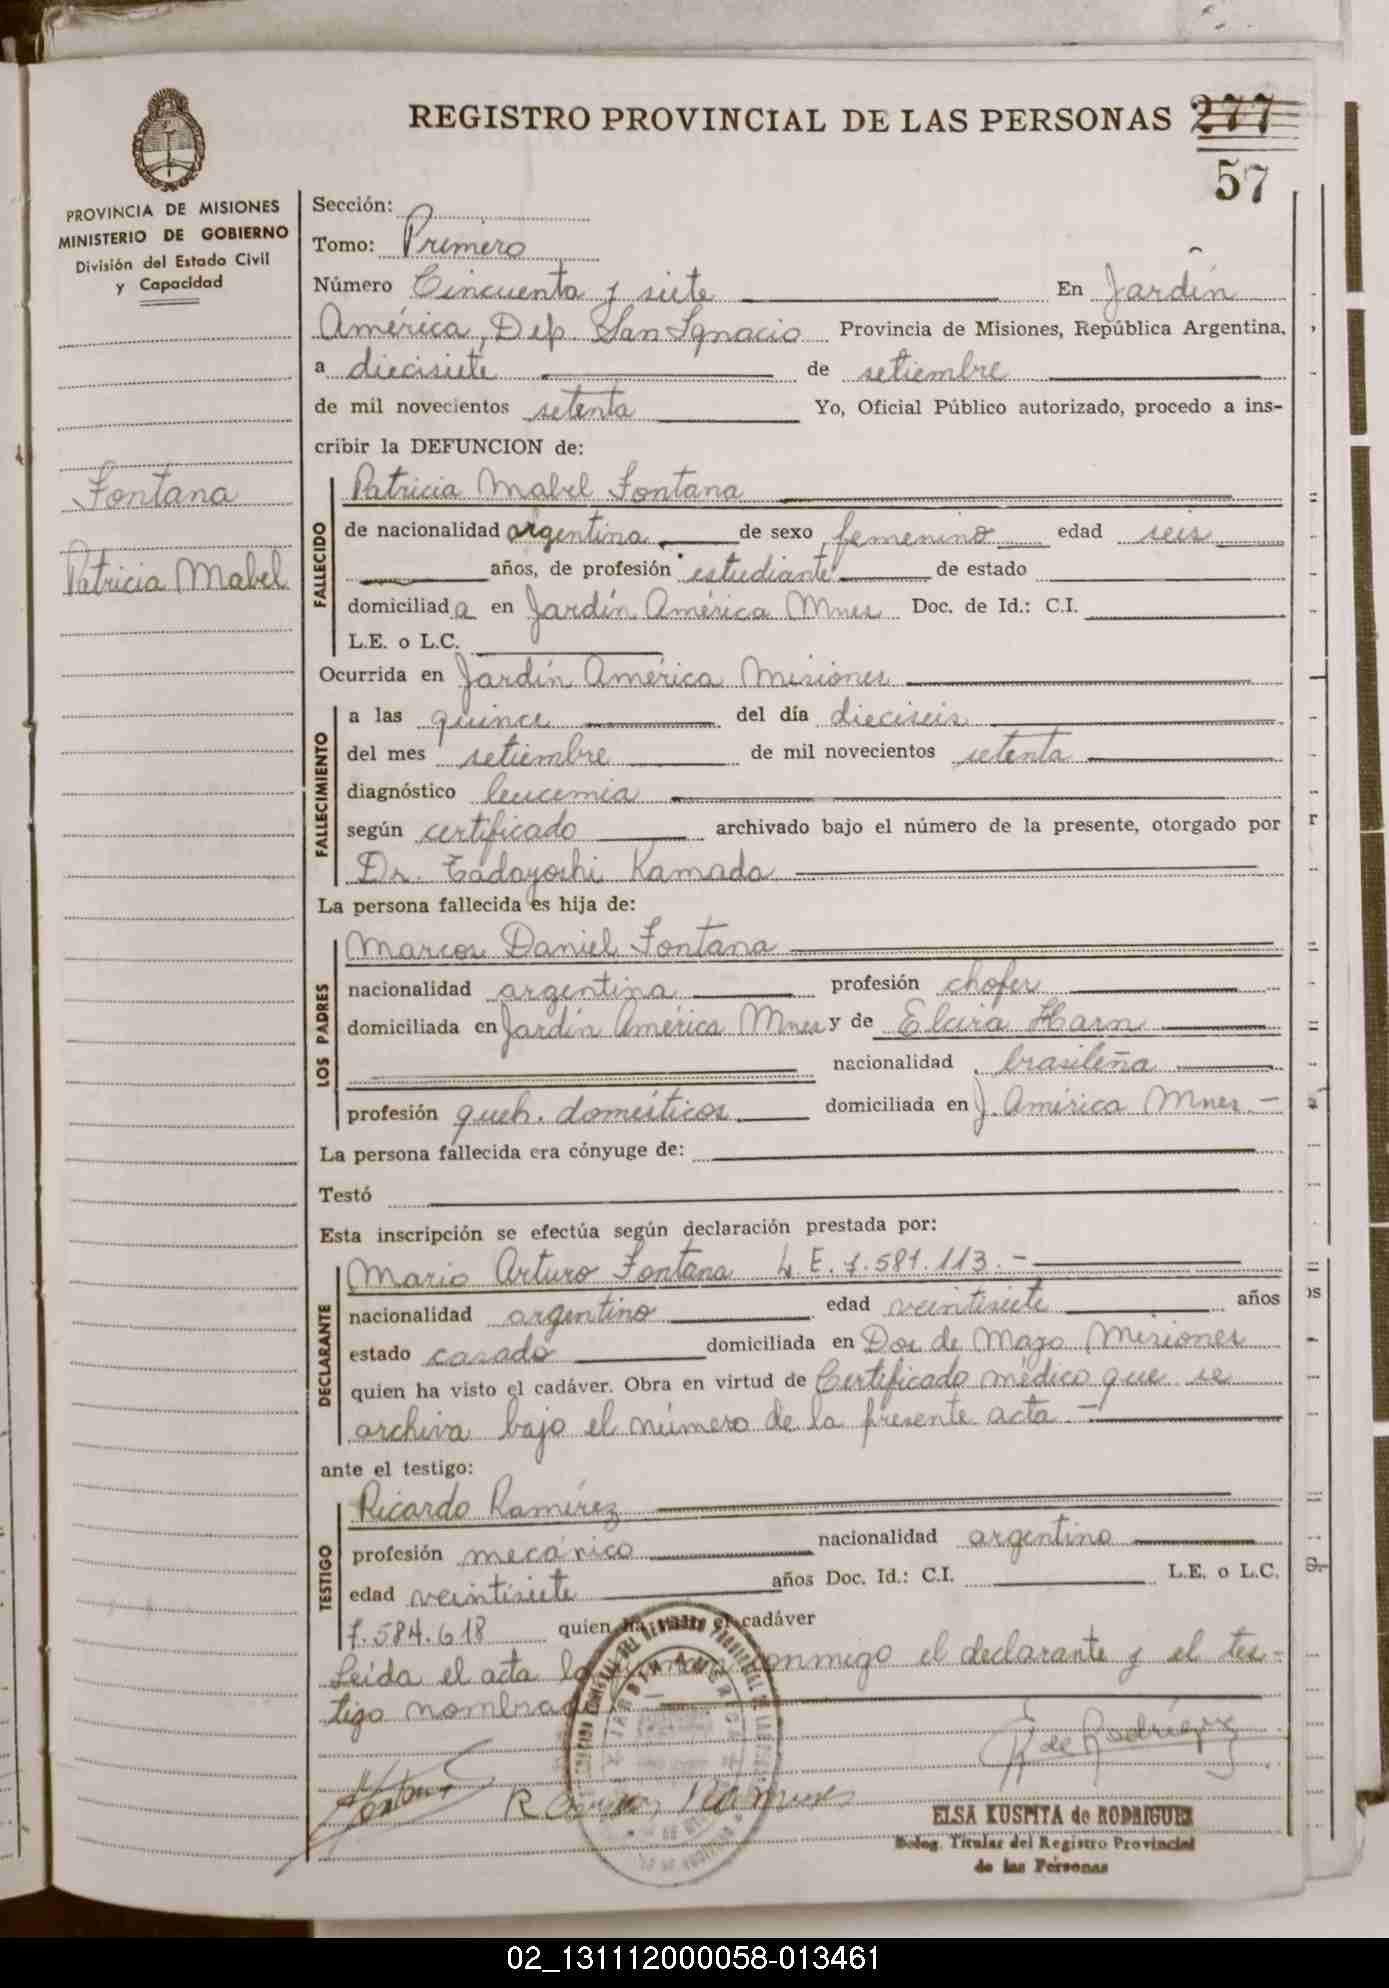 REGISTRO PROVINCIAL DE LAS PERSONAS 277
57
PROVINCIA DE MISIONES
MINISTERIO DE GOBIERNO
División del Estado Civil
y Capacidad
Fontana
Patricia Mabel
Sección:
Tomo: Primero
Número Cincuenta y siete En Jardín
América, Dep. San Ignacio Provincia de Misiones, República Argentina,
a diecisiete de setiembre
de mil novecientos setenta Yo, Oficial Público autorizado, procedo a ins-
cribir la DEFUNCION de:
FALLECIDO
Patricia Mabel Fontana
de nacionalidad argentina de sexo femenino edad seis
años, de profesión estudiante de estado
domiciliada en Jardín América Mnes Doc. de Id.: C.I.
L.E. o L.C.
Ocurrida en Jardín América Misiones
FALLECIMIENTO
a las quince del día dieciseis
del mes setiembre de mil novecientos setenta
diagnóstico leucemia
según certificado archivado bajo el número de la presente, otorgado por
Dr. Tadayoshi Kamada
La persona fallecida es hija de:
LOS PADRES
Marcos Daniel Fontana
nacionalidad argentina profesión chofer
domiciliada en Jardín América Mnes y de Elcira Harn
nacionalidad brasileña
profesión queh. domésticos domiciliada en J. América Mnes -
La persona fallecida era cónyuge de:
Testó
Esta inscripción se efectúa según declaración prestada por:
DECLARANTE
Mario Arturo Fontana L.E. 7.581.113.-
nacionalidad argentino edad veintisiete años
estado casado domiciliada en Dos de Mayo Misiones
quien ha visto el cadáver. Obra en virtud de Certificado médico que se
archiva bajo el número de la presente acta -
ante el testigo:
TESTIGO
Ricardo Ramírez
profesión mecánico nacionalidad argentino
edad veintisiete años Doc. Id.: C.I. L.E. o L.C.
7.584.618 quien ha visto el cadáver
Leída el acta la conmigo el declarante y el tes-
tigo nombrado
R de Rodríguez
ELSA KUSPITA de RODRIGUEZ
Deleg. Titular del Registro Provincial
de las Personas
02_131112000058-013461